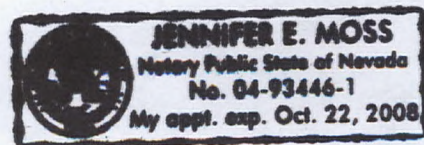 JENNIFER E. MOSS
Notary Public State of Nevada
No. 04-93446-1
My appt. exp. Oct. 22, 2008